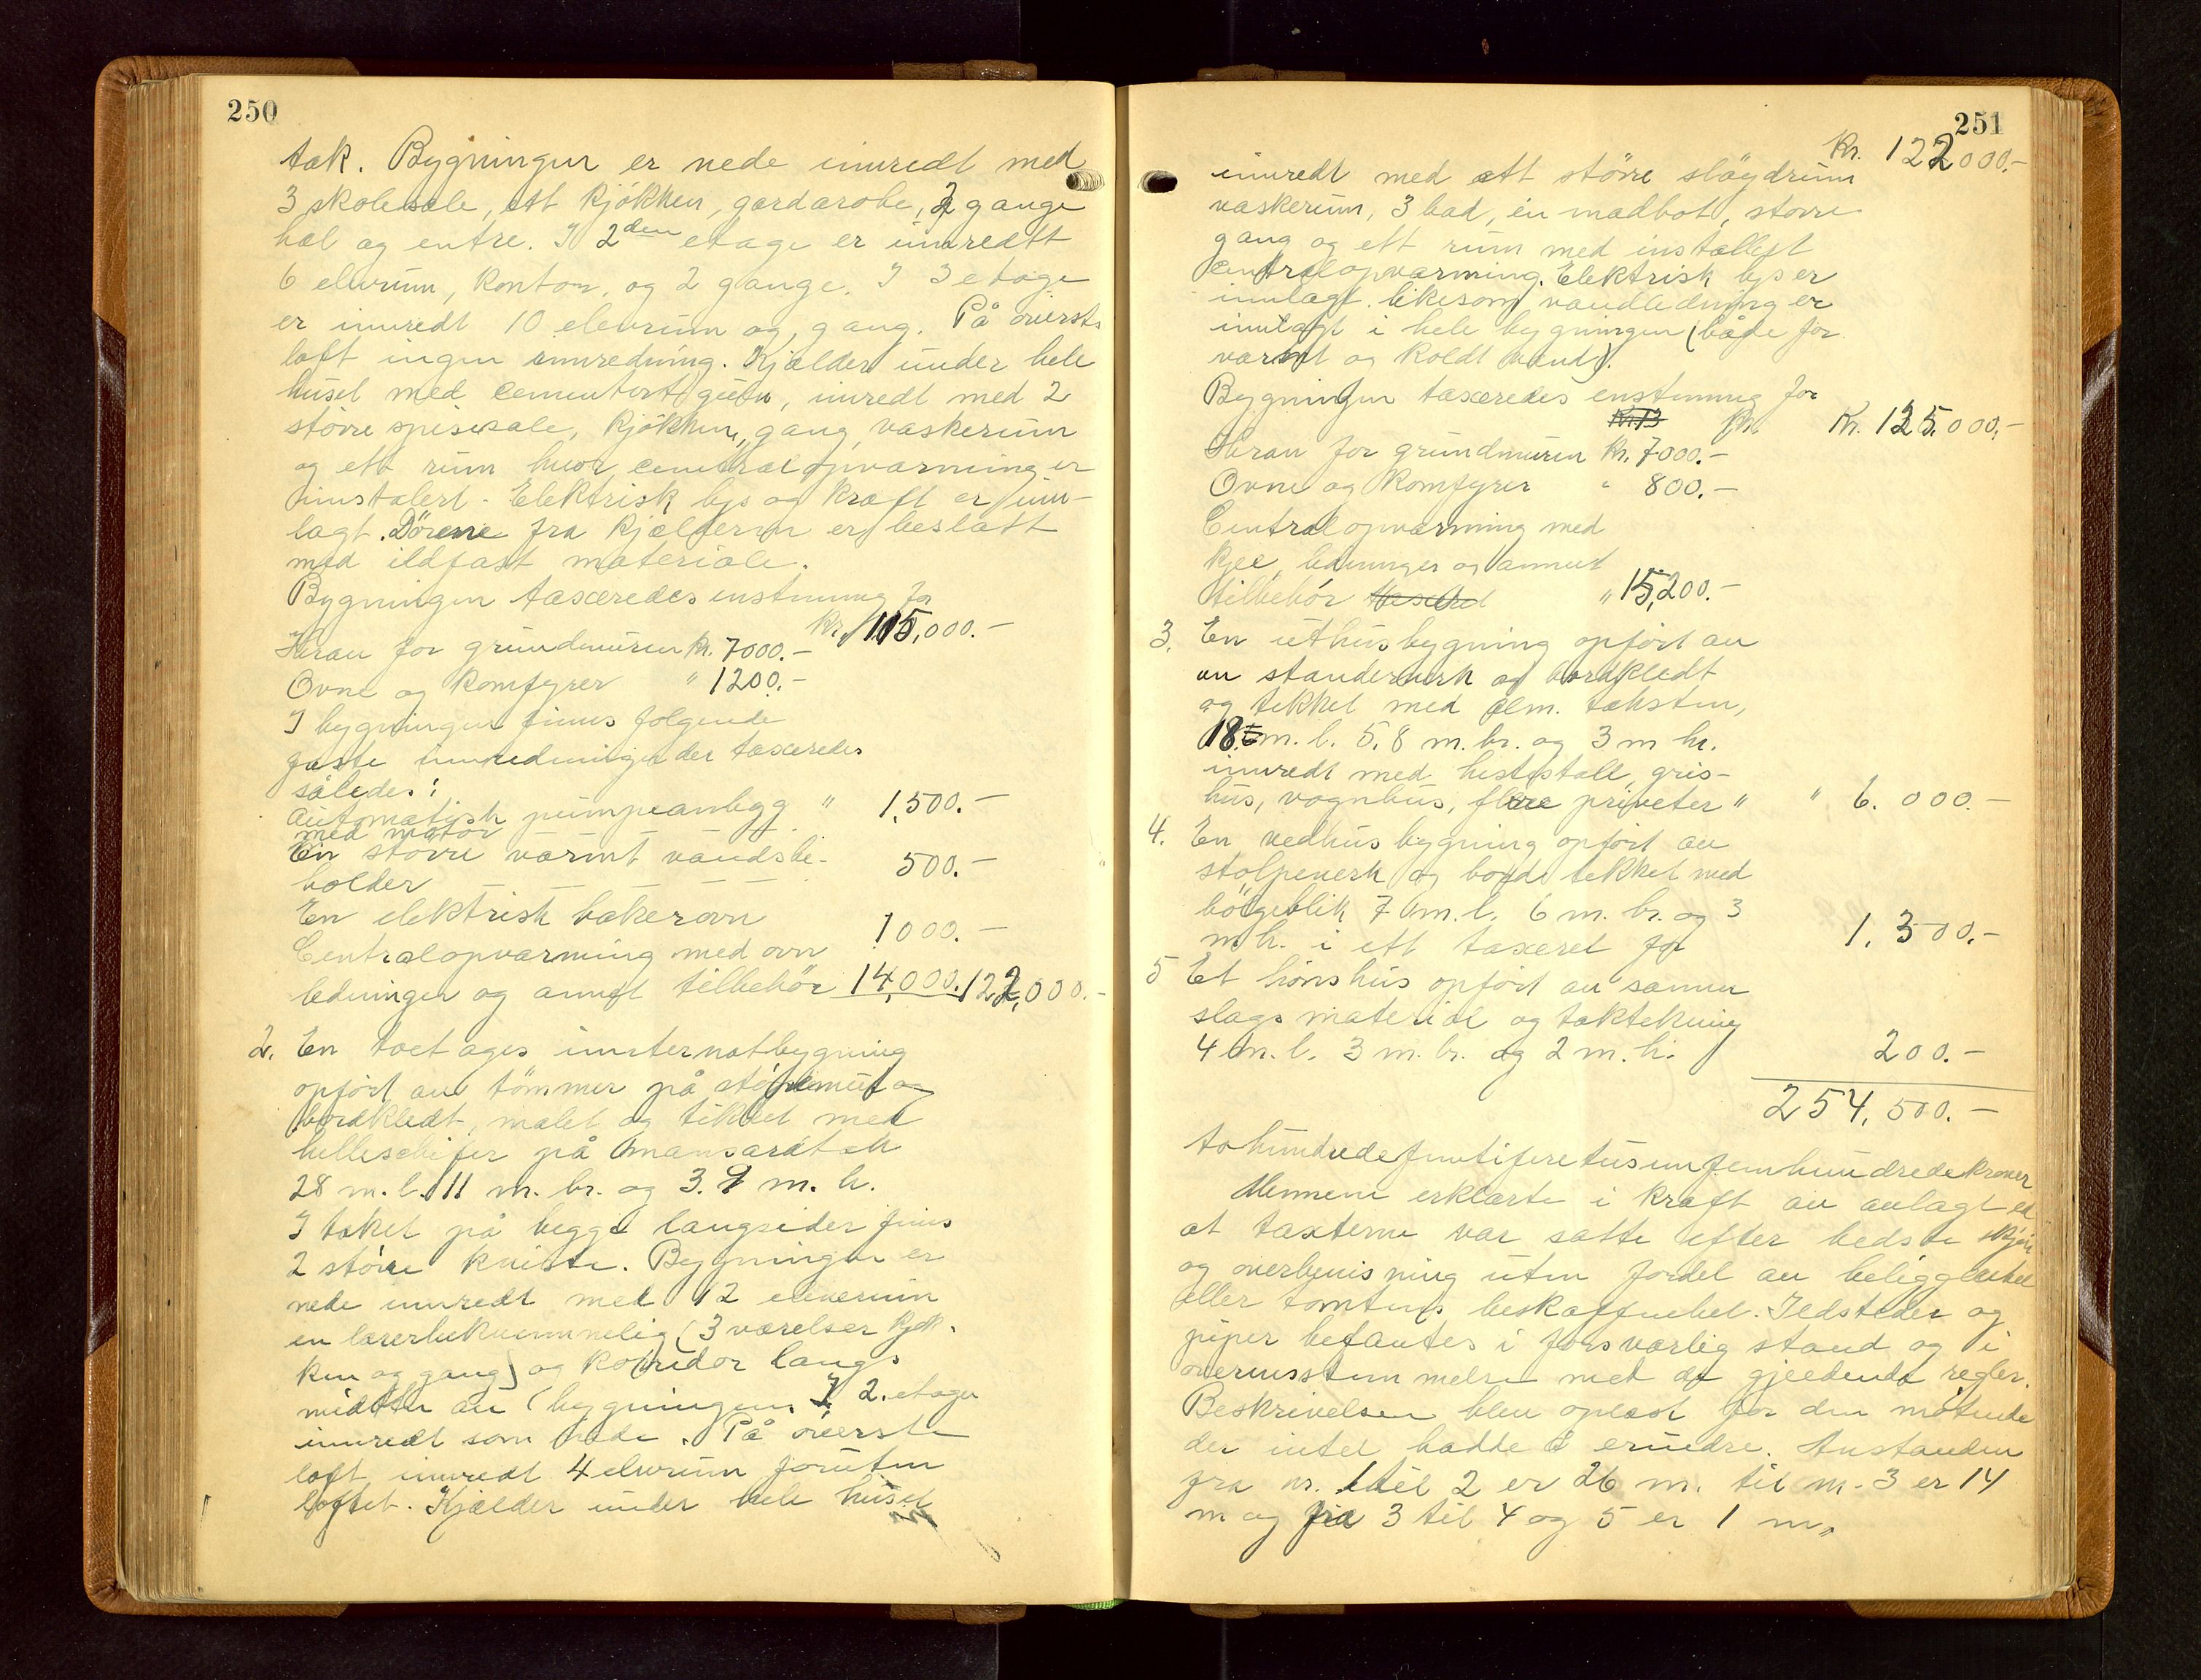 250
tak. Bygningen er nede innredt med
3 skolesale, ett kjökken, gardarobe, 2 gange
hal og entre. I 2den etage er innredtt
6 elevrum, kontor, og 2 gange. I 3 etage
er innredt 10 elevrum og gang. På överste
loft ingen innredning. Kjælder under hele
huset med cementert gulv, inredt med 2
större spisesale, kjökken, gang, vaskerum
og ett rum hvor centralopvarming er
instalert. Elektrisk lys og kraft er inn-
lagt. Dörene fra kjælderen er beslått
med ildfast materiale.
Bygningen taxeredes enstemmig for
kr. 115,000.-
Herav for grundmuren kr. 7000.-
Ovne og komfyrer " 1200.-
I bygningen finns følgende
faste innredninger der taxeredes
således:
Automatisk pumpeanlegg " 1,500.-
med motor
En större varmt vandsbe-
holder 500.-
En elektrisk bakerovn 1000.-
Centralopvarming med ovn
ledninger og annet tilbehör 14,000. 122,000.-
2. En toetages internatbygning
opfört av tömmer på stöpemur og
bordkledt, malet og tekket med
helleskifer på mansardtak
28 m. l. 11 m. br. og 3.9 m. h.
I taket på begge langsider finns
2 större kviste. Bygningen er
nede innredt med 12 eleverum
en lærerbekvemmelig (3 værelser kjök-
ken og gang) og korridor langs
midten av bygningen. I 2. etage
innredt som nede. På överste
loft innredt 4 elevrum foruten
loftet. Kjælder under hele huset
251
Kr. 122000.-
innredt med ett större slöydrum
vaskerum, 3 bad, en madbod, större
gang og ett rum med installert
centralopvarming. Elektrisk lys er
innlagt. likesom vandledning er
innlagt i hele bygningen (både for
varmt og koldt vand).
Bygningen taxeredes enstemmig for
Kr. 13 kr. Kr. 125,000.-
Herav for grundmuren kr. 7000.-
Ovne og komfyrer " 800.-
Centralopvarming med
kjel, ledninger og annet
tilbehör taxert " 15,200.-
3. En uthusbygning opfört av
av standerverk og bordkledt
og tekket med alm. taksten,
18. m. l. 5.8 m. br. og 3 m h.
innredt med hestestall, gris-
hus, vognhus, flere priveter " " 6.000.-
4. En vedhusbygning opfört av
stolpeverk og bord tekket med
bölgeblik 7 m. l. 6 m. br. og 3
m h. i ett taxeret for 1.300.-
5 Et hönshus opfört av samme
slags material og taktekning
4 m. l. 3 m. br. og 2 m. h. 200.-
254,500.-
tohundredefemtifiretusenfemhundredekroner
Mennene erklærte i kraft av avlagt ed
at taxterne var satte efter bedste skjön
og overbevisning uten fordel av beliggenhet
eller tomtens beskaffenhet. Ildsteder og
piper befantes i forsvarlig stand og i
overensstemmelse med de gjeldende regler.
Beskrivelsen blev oplæst for den møtende
der intet hadde å erindre. Avstanden
fra nr. 1 til 2 er 26 m. til nr. 3 er 14
m og fra 3 til 4 og 5 er 1 m.